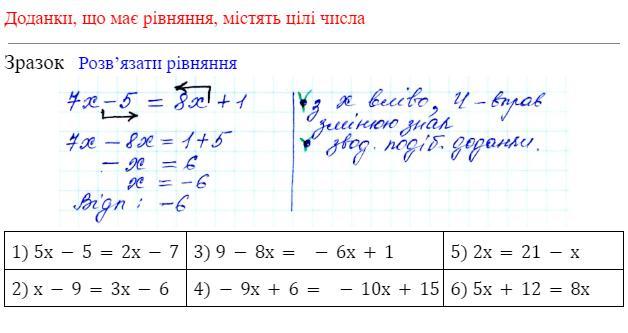 Доданки, що має рівняння, містять цілі числа
Зразок Розв’язати рівняння
7x − 5 = 8x + 1
7x − 8x = 1 + 5
− x = 6
x = −6
Відп: −6
з x вліво, Ч – вправ
змінюю знак
звод. подіб. доданки.
1) 5x − 5 = 2x − 7 3) 9 − 8x = − 6x + 1 5) 2x = 21 − x
2) x − 9 = 3x − 6 4) − 9x + 6 = − 10x + 15 6) 5x + 12 = 8x